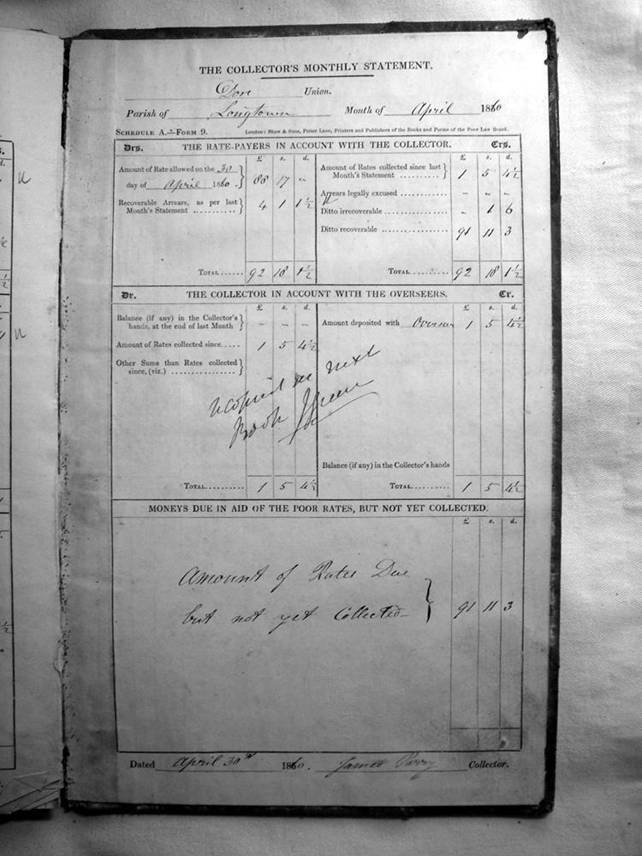 THE COLLECTOR'S MONTHLY STATEMENT.
Dore Union.
Parish of Longtown Month of April 1860
SCHEDULE A.—FORM 9. London: Shaw & Sons, Fetter Lane, Printers and Publishers of the Books and Forms of the Poor Law Board.
Drs. THE RATE-PAYERS IN ACCOUNT WITH THE COLLECTOR. Crs.
£ s. d. £ s. d.
Amount of Rate allowed on the 30
day of April 1860 } 88 17 „
Recoverable Arrears, as per last
Month's Statement .......... } 4 1 1½
TOTAL...... 92 18 1½
Amount of Rates collected since last
Month's Statement .......... } 1 5 4½
Arrears legally excused
Ditto irrecoverable .......... „ 1 6
Ditto recoverable .......... 91 11 3
TOTAL...... 92 18 1½
Dr. THE COLLECTOR IN ACCOUNT WITH THE OVERSEERS. Cr.
£ s. d. £ s. d.
Balance (if any) in the Collector's
hands, at the end of last Month } – – –
Amount of Rates collected since.... 1 5 4½
Other Sums than Rates collected
since, (viz.) ................ }
in next
Book
TOTAL.......... 1 5 4½
Amount deposited with Overseer 1 5 4½
Balance (if any) in the Collector's hands
TOTAL.......... 1 5 4½
MONEYS DUE IN AID OF THE POOR RATES, BUT NOT YET COLLECTED.
£ s. d.
Amount of Rates Due
but not yet Collected } 91 11 3
Dated April 30th 1860. James Parry Collector.